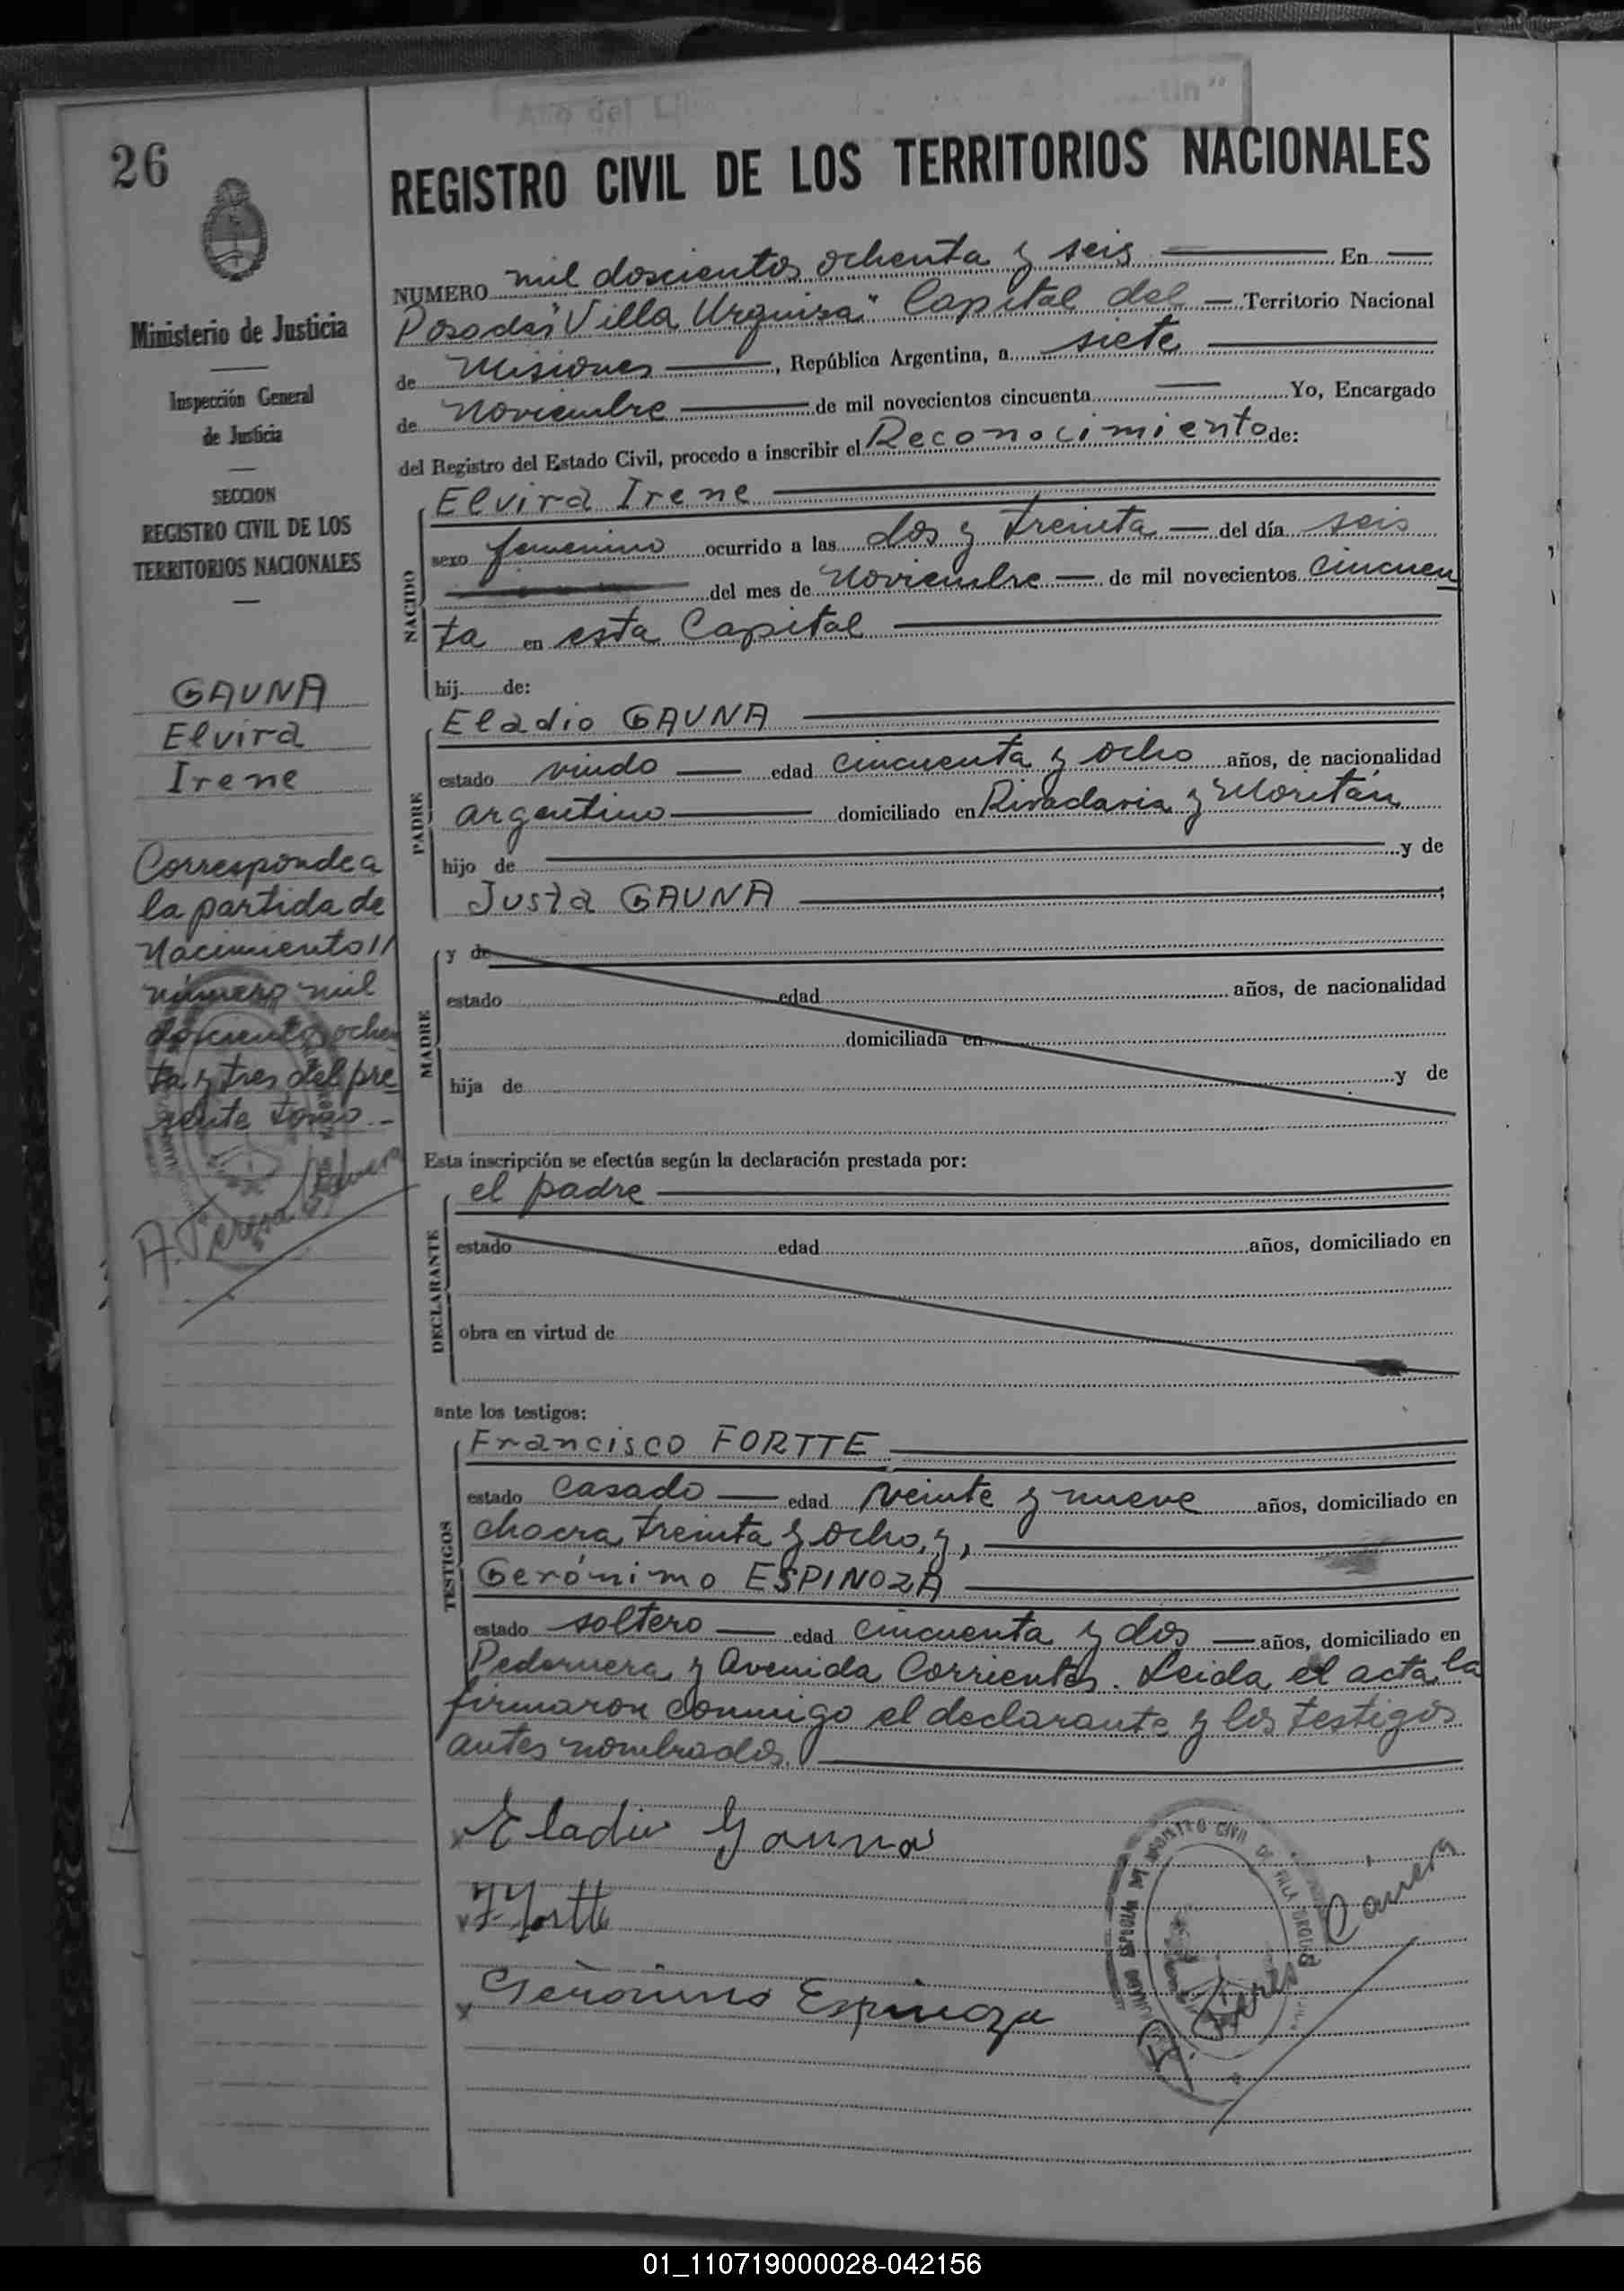 26
REGISTRO CIVIL DE LOS TERRITORIOS NACIONALES
Ministerio de Justicia
Inspección General
de Justicia
SECCION
REGISTRO CIVIL DE LOS
TERRITORIOS NACIONALES
GAUNA
Elvira
Irene
Corresponde a
la partida de
Nacimiento
número mil
doscientos ochen
ta y tres del pre
sente tomo.-
NUMERO mil doscientos ochenta y seis En
Posadas "Villa Urquiza" Capital del Territorio Nacional
de Misiones, República Argentina, a siete
de Noviembre de mil novecientos cincuenta Yo, Encargado
del Registro del Estado Civil, procedo a inscribir el Reconocimiento de:
NACIDO
Elvira Irene
sexo femenino ocurrido a las dos y treinta del día seis
del mes de Noviembre de mil novecientos cincuen
ta en esta Capital
hij de:
PADRE
Eladio GAUNA
estado viudo edad cincuenta y ocho años, de nacionalidad
argentino domiciliado en Rivadavia y
hijo de y de
Justa GAUNA
MADRE
y de
estado edad años, de nacionalidad
domiciliada en
hija de y de
Esta inscripción se efectúa según la declaración prestada por:
DECLARANTE
el padre
estado edad años, domiciliado en
obra en virtud de
ante los testigos:
TESTIGOS
Francisco FORTTE
estado casado edad veinte y nueve años, domiciliado en
chacra treinta y ocho, y,
Gerónimo ESPINOZA
estado soltero edad cincuenta y dos años, domiciliado en
Pedernera y Avenida Corrientes. Leida el acta la
firmaron conmigo el declarante y los testigos
antes nombrados.
Eladio Gauna
Gerónimo Espinoza
01_110719000028-042156